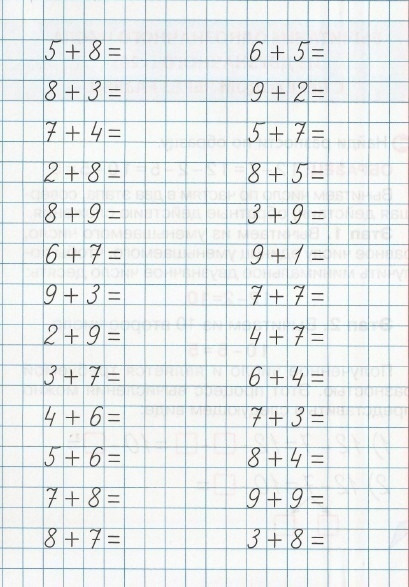 5 + 8 = 6 + 5 =
8 + 3 = 9 + 2 =
7 + 4 = 5 + 7 =
2 + 8 = 8 + 5 =
8 + 9 = 3 + 9 =
6 + 7 = 9 + 1 =
9 + 3 = 7 + 7 =
2 + 9 = 4 + 7 =
3 + 7 = 6 + 4 =
4 + 6 = 7 + 3 =
5 + 6 = 8 + 4 =
7 + 8 = 9 + 9 =
8 + 7 = 3 + 8 =